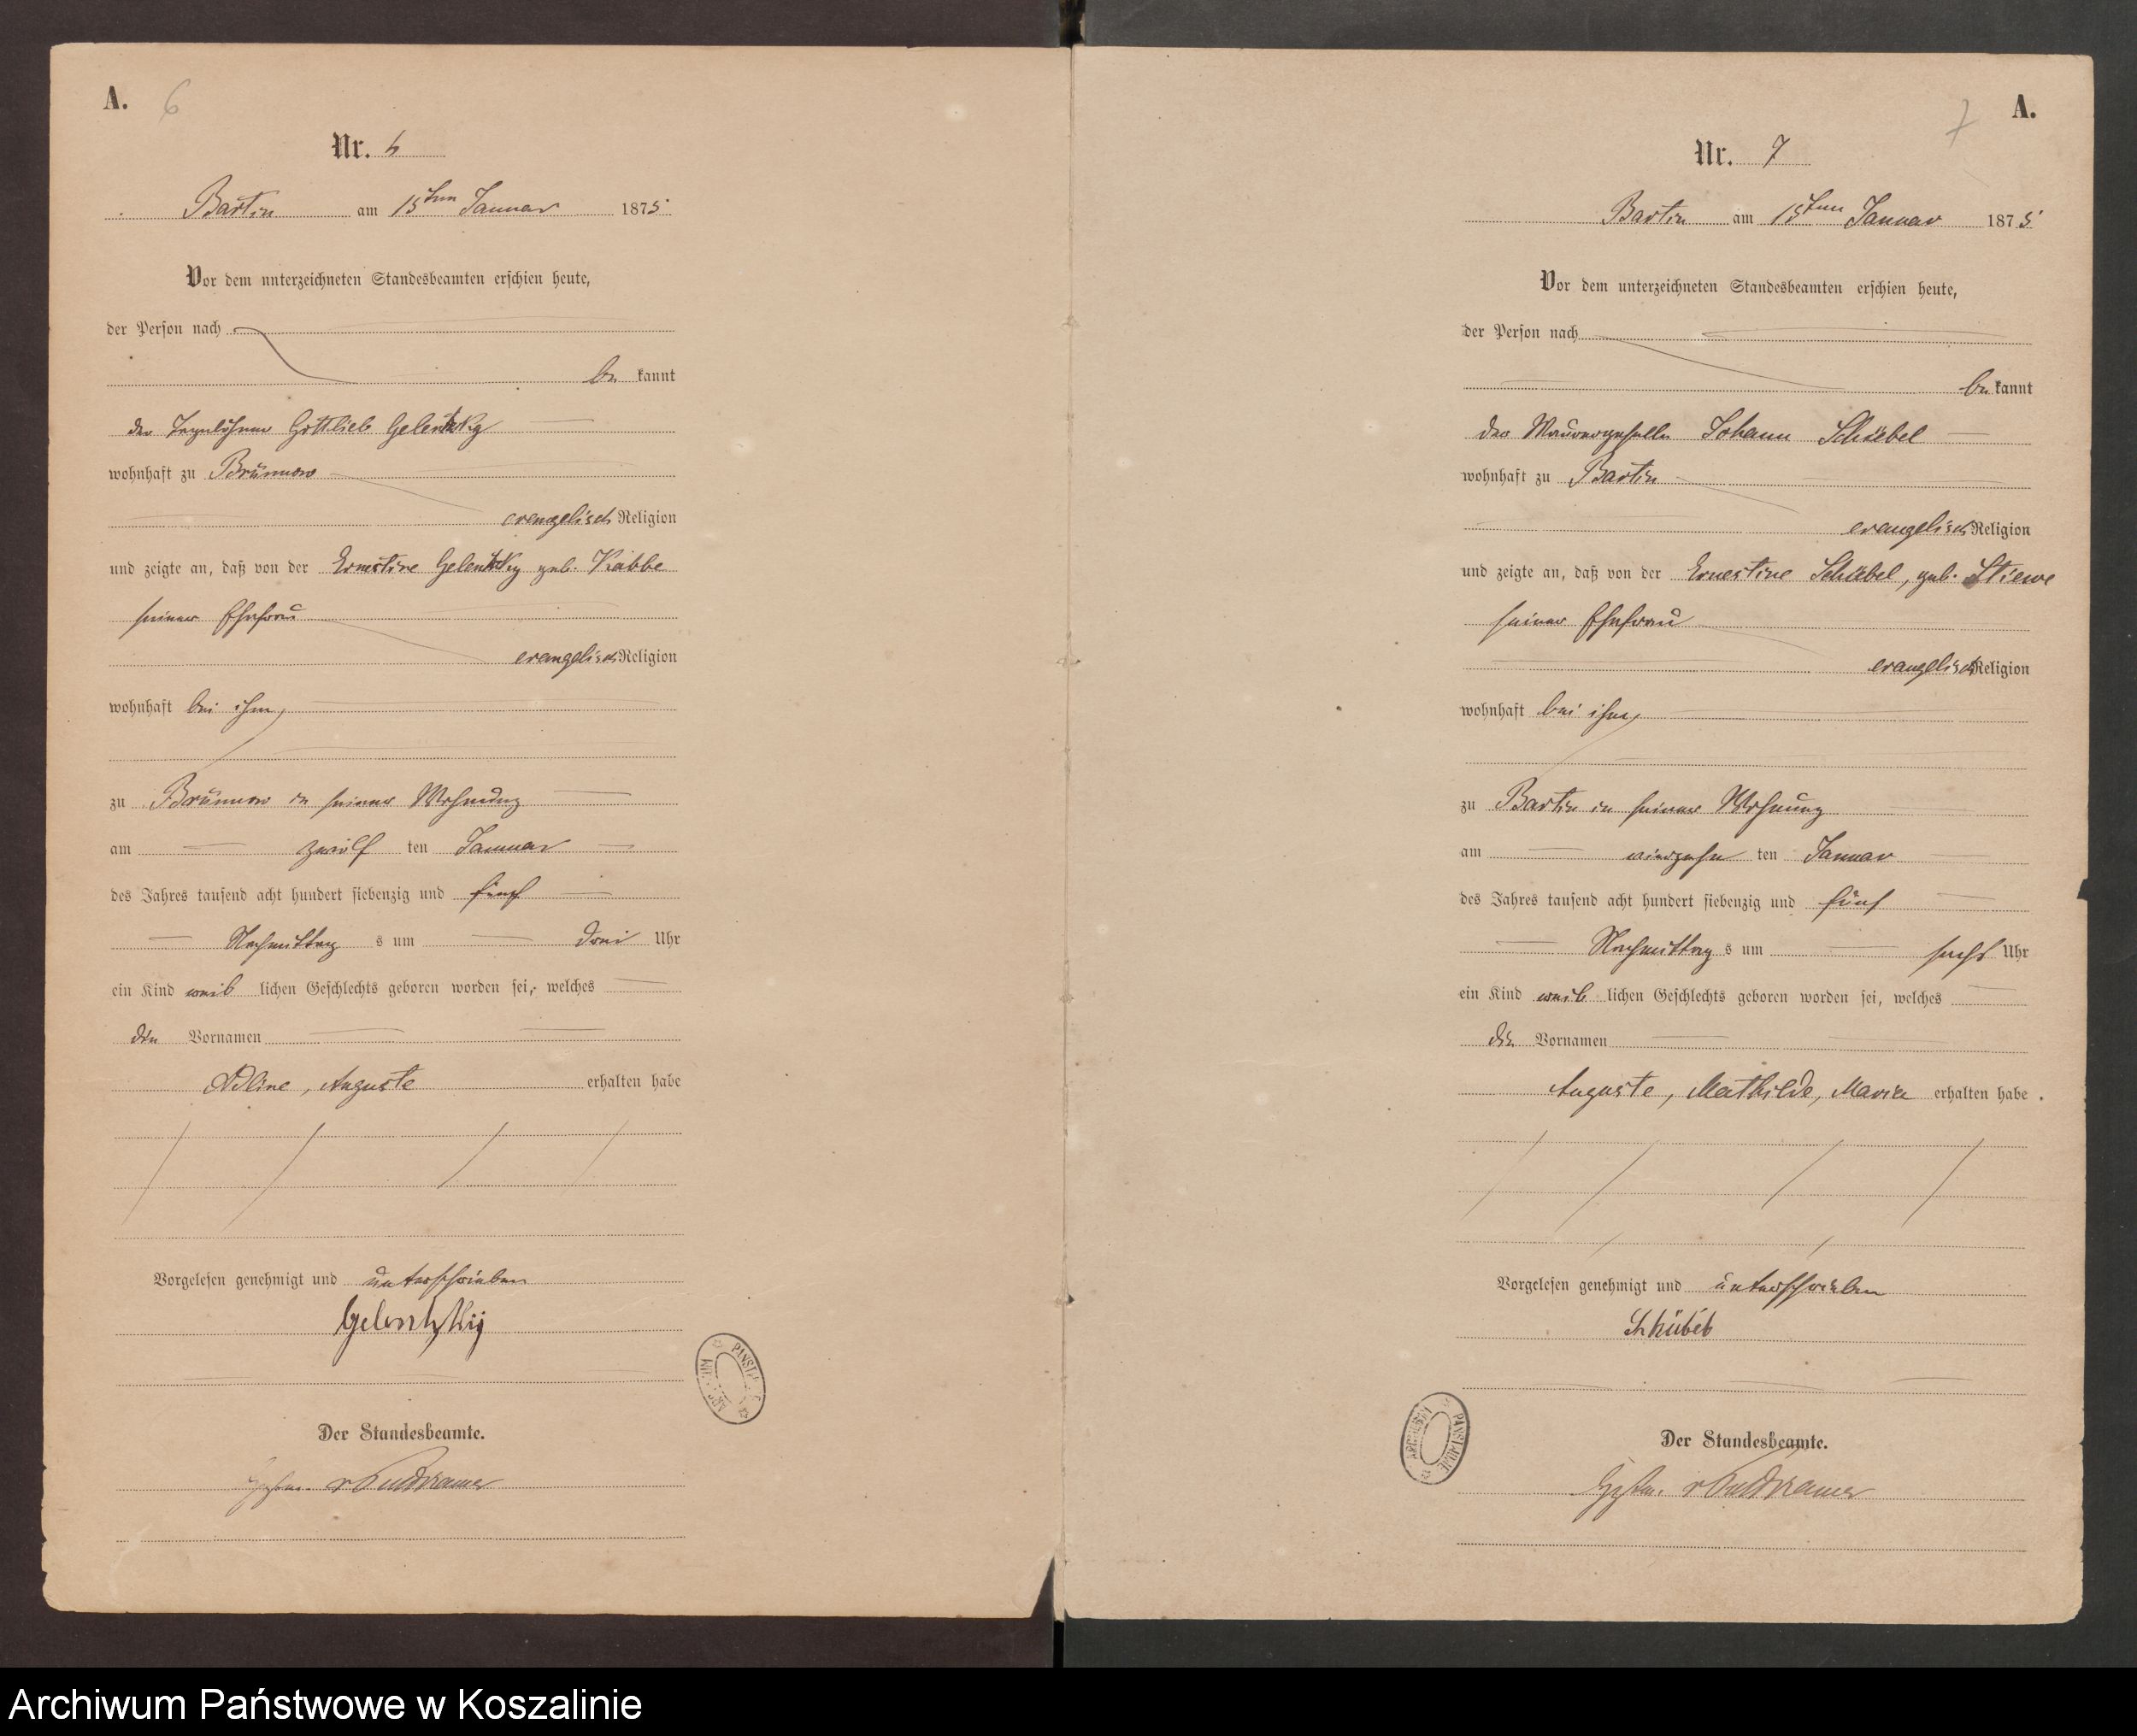 A. 6
Nr. 6
Bartin am 15ten Januar 1875
Vor dem unterzeichneten Standesbeamten erschien heute,
der Person nach
be kannt
der Tagelöhner Gottlieb
wohnhaft zu Brünnow
evangelisch Religion
und zeigte an, daß von der Ernestine geb. Kabbe
seiner Ehefrau
evangelisch Religion
wohnhaft bei ihm,
zu Brünnow in seiner Wohnung
am zwölf ten Januar
des Jahres tausend acht hundert siebenzig und fünf
Nachmittag s um drei Uhr
ein Kind weib lichen Geschlechts geboren worden sei, welches
die Vornamen
Adline, Auguste erhalten habe
Vorgelesen genehmigt und unterschrieben
Der Standesbeamte.
v Puttkamer
7 A.
Nr. 7
Bartin am 15ten Januar 1875
Vor dem unterzeichneten Standesbeamten erschien heute,
der Person nach
be kannt
der Maurergeselle Johann Schübel
wohnhaft zu Bartin
evangelisch Religion
und zeigte an, daß von der Ernestine Schübel, geb. Stiewe
seiner Ehefrau
evangelisch Religion
wohnhaft bei ihm,
zu Bartin in seiner Wohnung
am vierzehn ten Januar
des Jahres tausend acht hundert siebenzig und fünf
Nachmittag s um sechs Uhr
ein Kind weib lichen Geschlechts geboren worden sei, welches
die Vornamen
Auguste, Mathilde, Marie erhalten habe.
Vorgelesen genehmigt und unterschrieben
Der Standesbeamte.
v Puttkamer
Archiwum Państwowe w Koszalinie